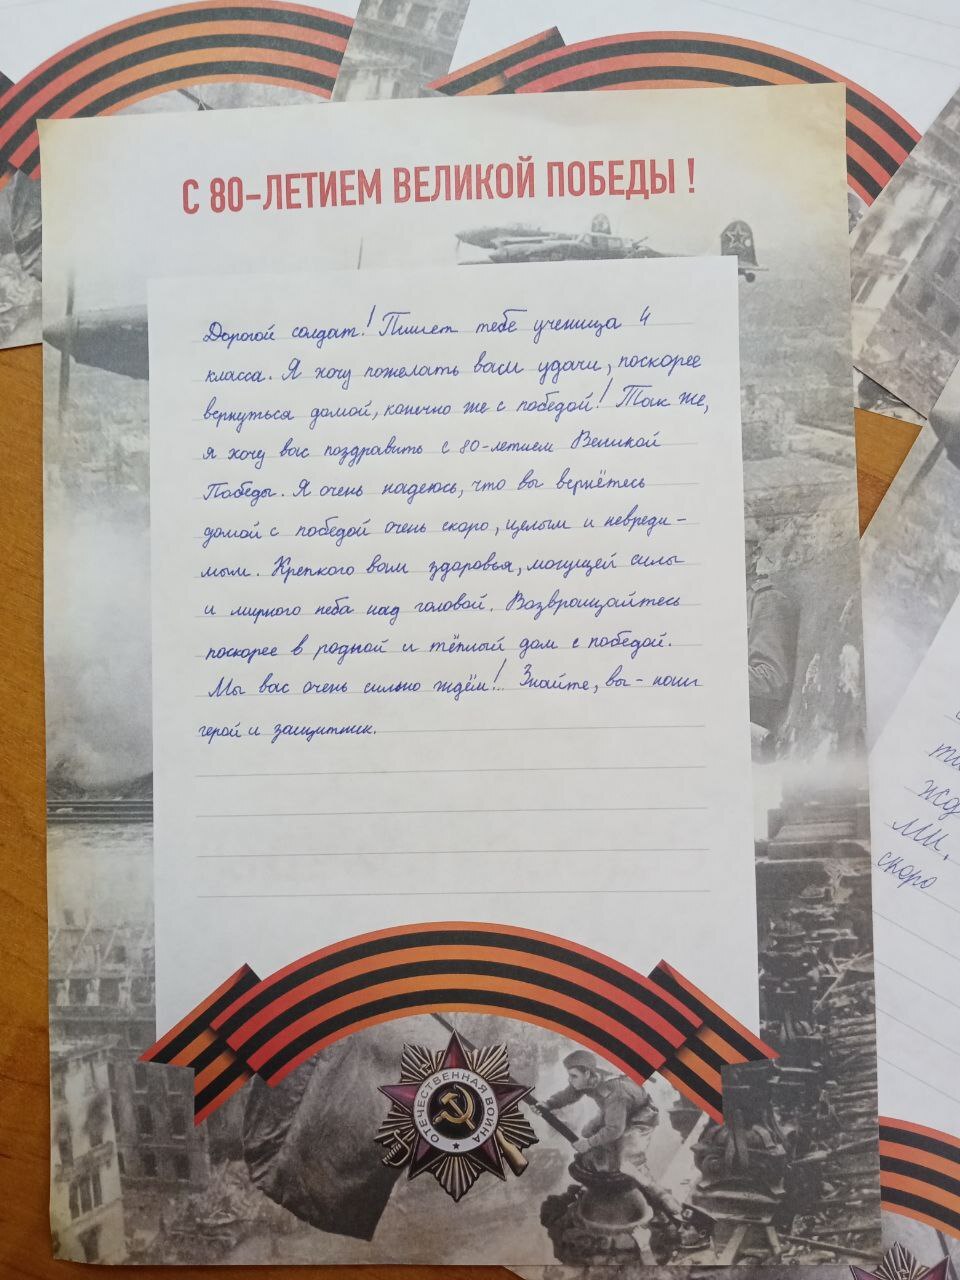 С 80-ЛЕТИЕМ ВЕЛИКОЙ ПОБЕДЫ !
Дорогой солдат! Пишет тебе ученица 4
класса. Я хочу пожелать вам удачи, поскорее
вернуться домой, конечно же с победой! Так же,
я хочу вас поздравить с 80-летием Великой
Победы. Я очень надеюсь, что вы вернётесь
домой с победой очень скоро, целым и невреди-
мым. Крепкого вам здоровья, могущей силы
и мирного неба над головой. Возвращайтесь
поскорее в родной и тёплый дом с победой.
Мы вас очень сильно ждём! Знайте, вы - наш
герой и защитник.
ОТЕЧЕСТВЕННАЯ ВОЙНА
жд
ми,
скоро